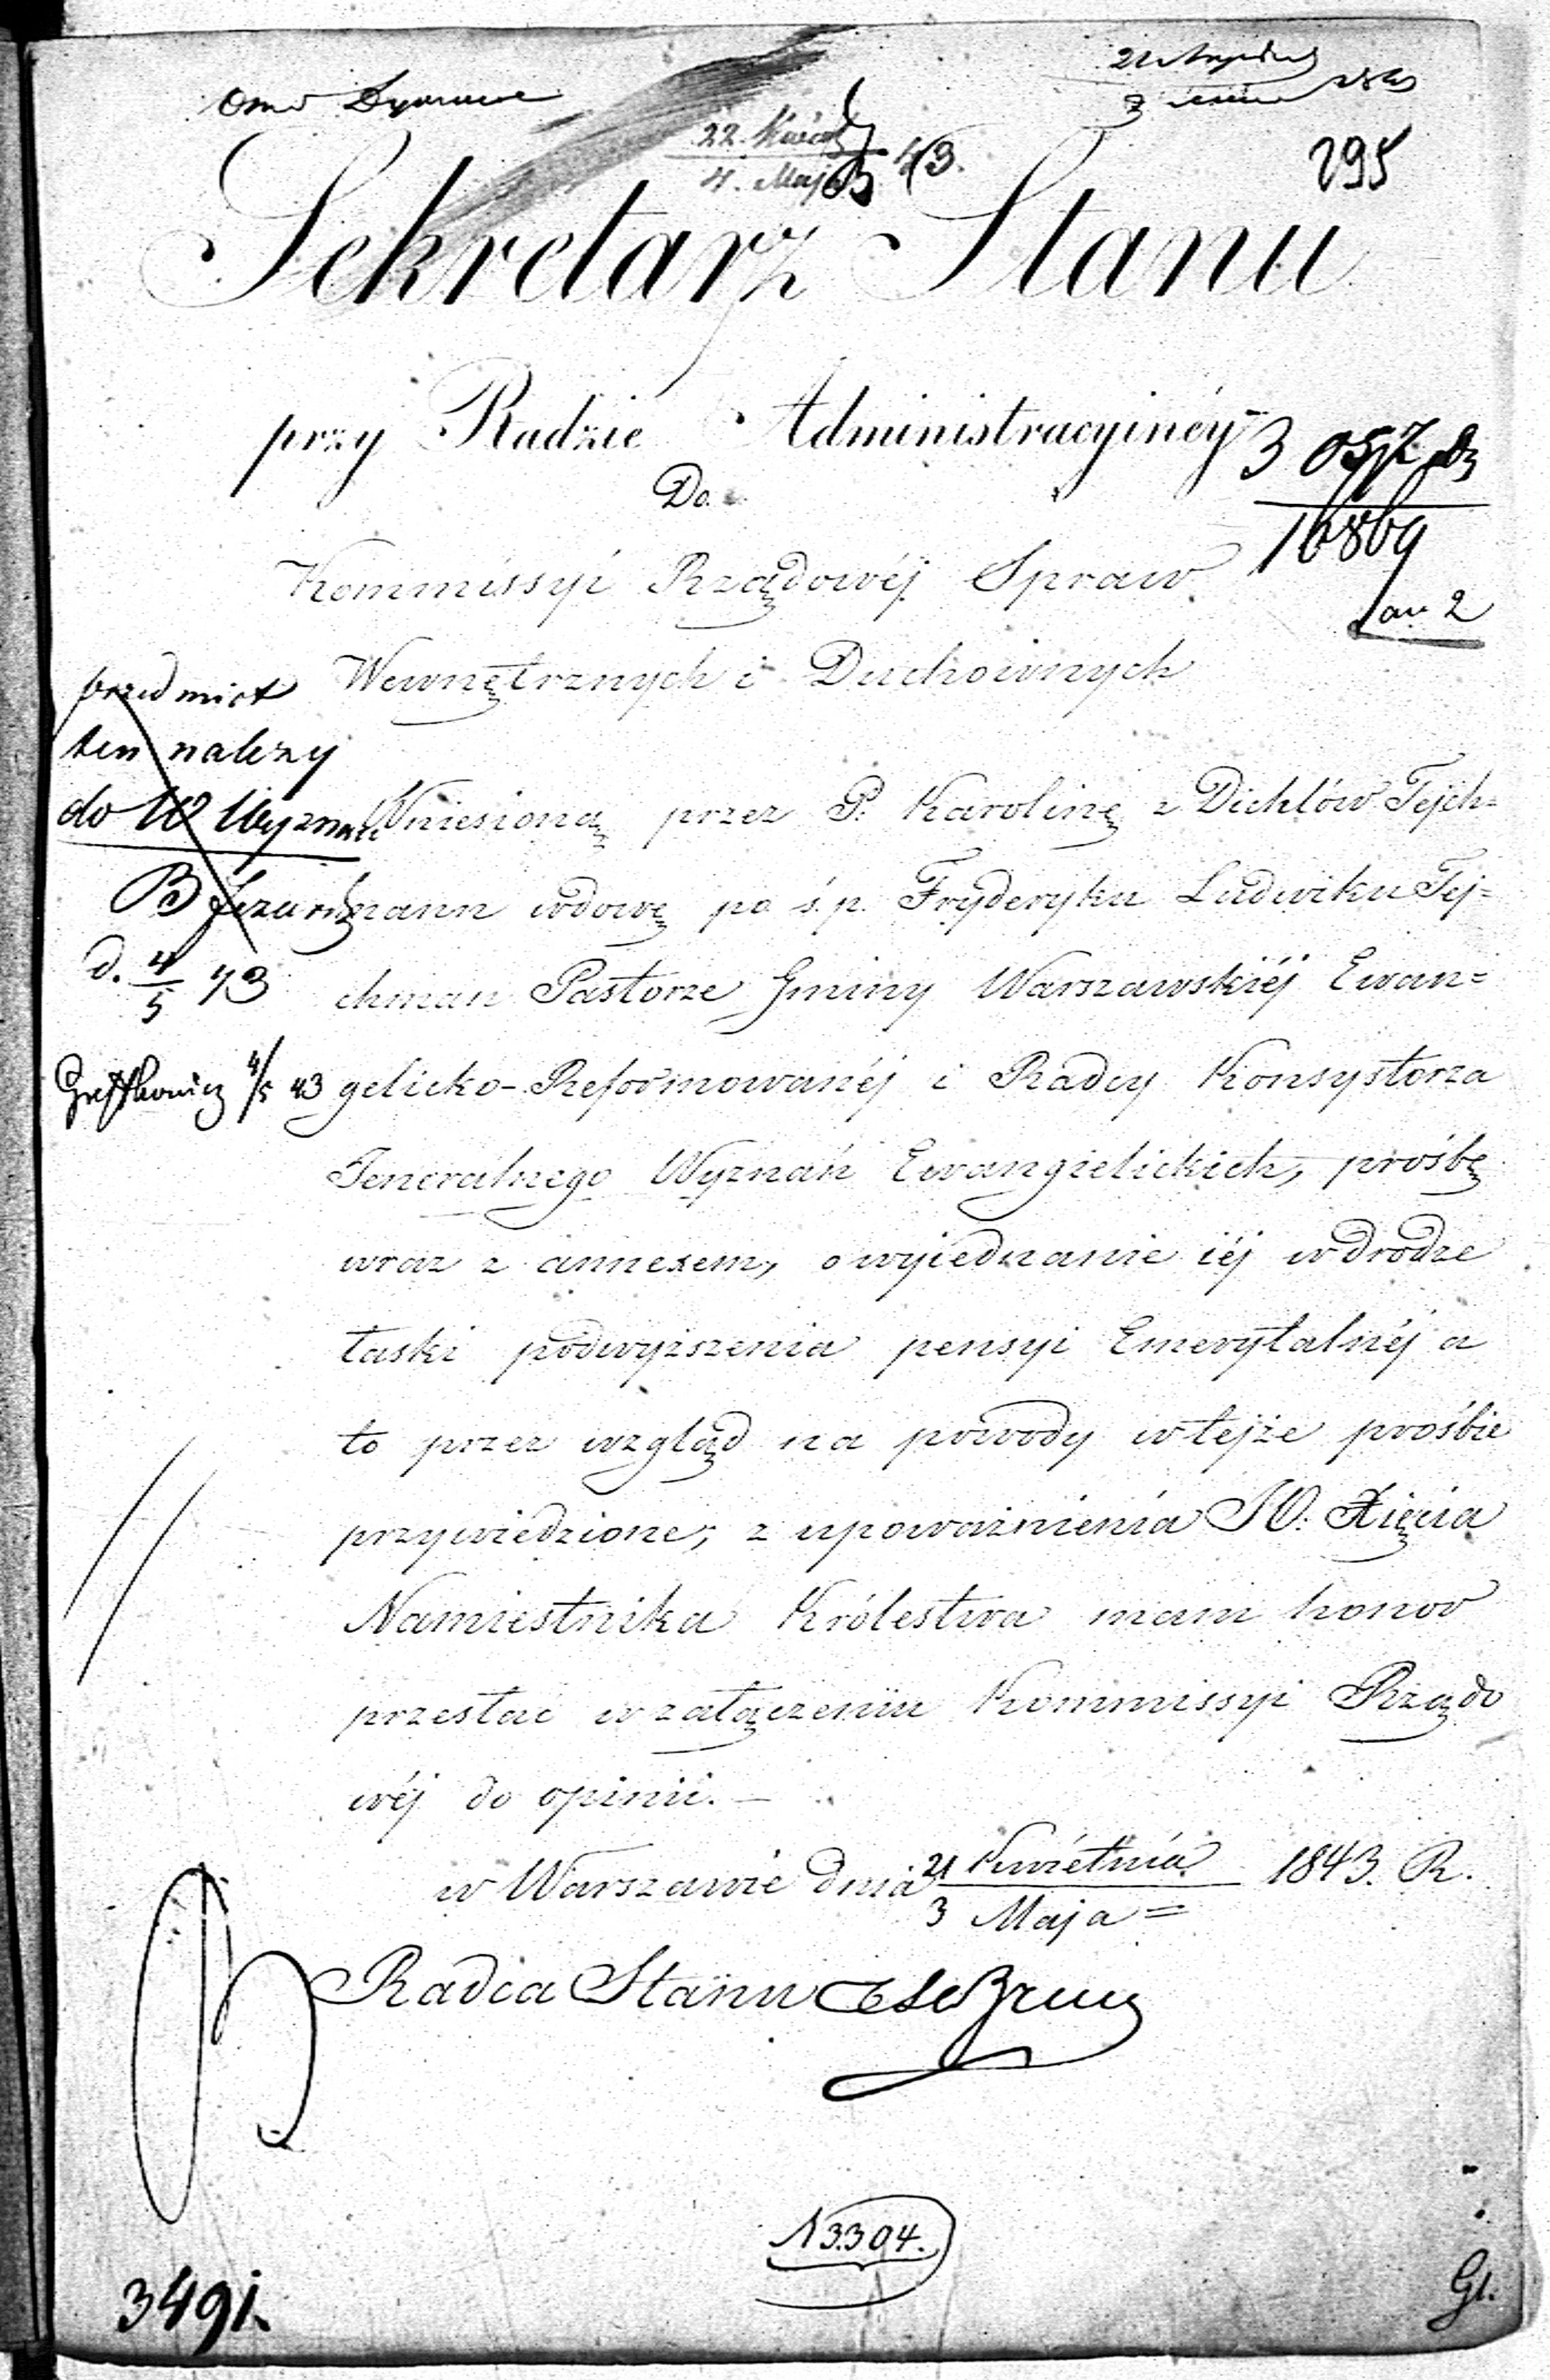 295
Sekretarz Stanu
przy Radzie Administracyinéy
Do
16869
Kommissyi Rządowéj Spraw
Wewnętrznych i Duchownych
przedmiot
ten należy
do W Wyznań
d. 4/5 43
4/5 43
Wniesioną przez P. Karolinę z Diehlów Tejch=
mann wdowę po ś.p. Fryderyku Ludwiku Tej=
chman Pastorze Gminy Warszawskiéj Ewan=
gelicko-Reformowanéj i Radcy Konsystorza
Jeneralnego Wyznań Ewangielickich, prośbę
wraz z annexem, o wyiednanie iéj w drodze
łaski podwyższenia pensyi Emerytalnéj a
to przez wzgląd na powody w tejże prośbie
przywiedzione; z upoważnienia JO: Xięcia
Namiestnika Królestwa mam honor
przesłać w załączeniu Kommissyi Rządo
wéj do opinii. –
w Warszawie dnia 21 Kwietnia / 3 Maja = 1843. R.
Radca Stanu
N 3304.
3491.